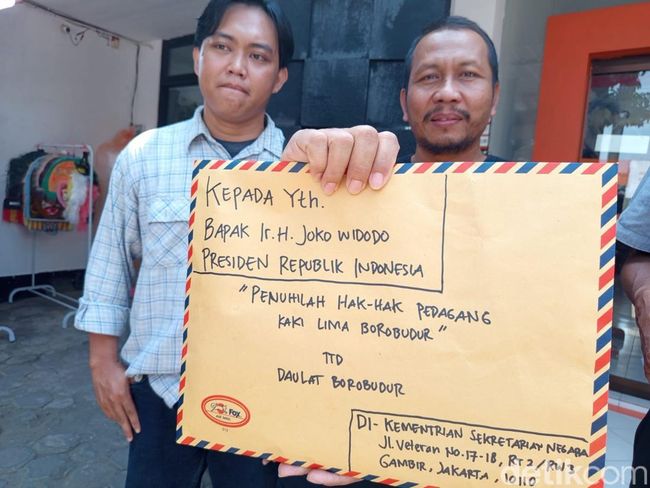 KEPADA Yth.
BAPAK Ir. H. JOKO WIDODO
PRESIDEN REPUBLIK INDONESIA
"PENUHILAH HAK-HAK PEDAGANG
KAKI LIMA BOROBUDUR"
TTD
DAULAT BOROBUDUR
FOX
AIR MAIL
DI- KEMENTRIAN SEKRETARIAN NEGARA
Jl. Veteran No. 17-18, RT 2/RW 3
GAMBIR, JAKARTA. 10110
detikcom